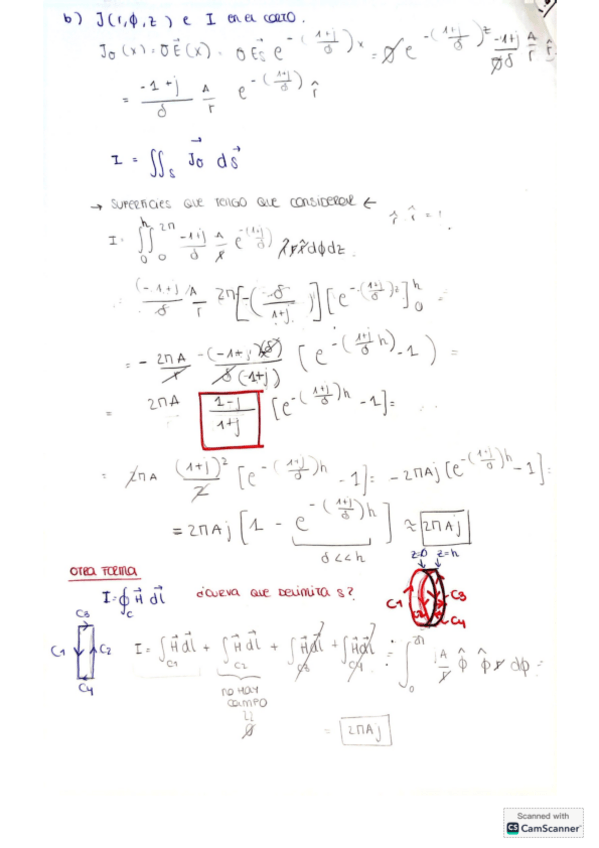 b) J(r,ϕ,z) e I en el corto.
J₀(x) = σE⃗(x) = σ E⃗s e^{-(1+j/δ)x} = σ e^{-(1+j/δ)z} -1+j/σδ A/r r̂
= -1+j/δ A/r e^{-(1+j/δ)} r̂
I = ∬_S J⃗₀ dS⃗
→ superficies que tengo que considerar ←
r̂ · r̂ = 1.
I = ∫₀^h ∫₀^{2π} -1+j/δ A/r e^{-(1+j/δ)} r̂ r r̂ dϕ dz.
(-1+j)A/δ r 2π [-(-δ/1+j)] [e^{-(1+j/δ)z}]₀^h =
= - 2πA/r -(-1+j)(δ)/δ(-1+j) [e^{-(1+j/δ h)} - 1) =
= 2πA 1-j/1+j [e^{-(1+j/δ)h} - 1] =
= 2πA (1+j)²/2 [e^{-(1+j/δ)h} - 1] = -2πAj [e^{-(1+j/δ)h} - 1] =
= 2πAj [1 - e^{-(1+j/δ)h}] ≈ 2πAj
δ << h
z=0 z=h
OTRA FORMA
I = ∮_C H⃗ dl⃗ ¿curva que delimita S?
C1 C3
C2 C4
C3
C1 C2
C4
I = ∫_{C1} H⃗ dl⃗ + ∫_{C2} H⃗ dl⃗ + ∫_{C3} H⃗ dl⃗ + ∫_{C4} H⃗ dl⃗ = ∫₀^{2π} A/r ϕ̂ ϕ̂ r dϕ =
no hay
campo
0
= 2πAj
Scanned with
CS CamScanner